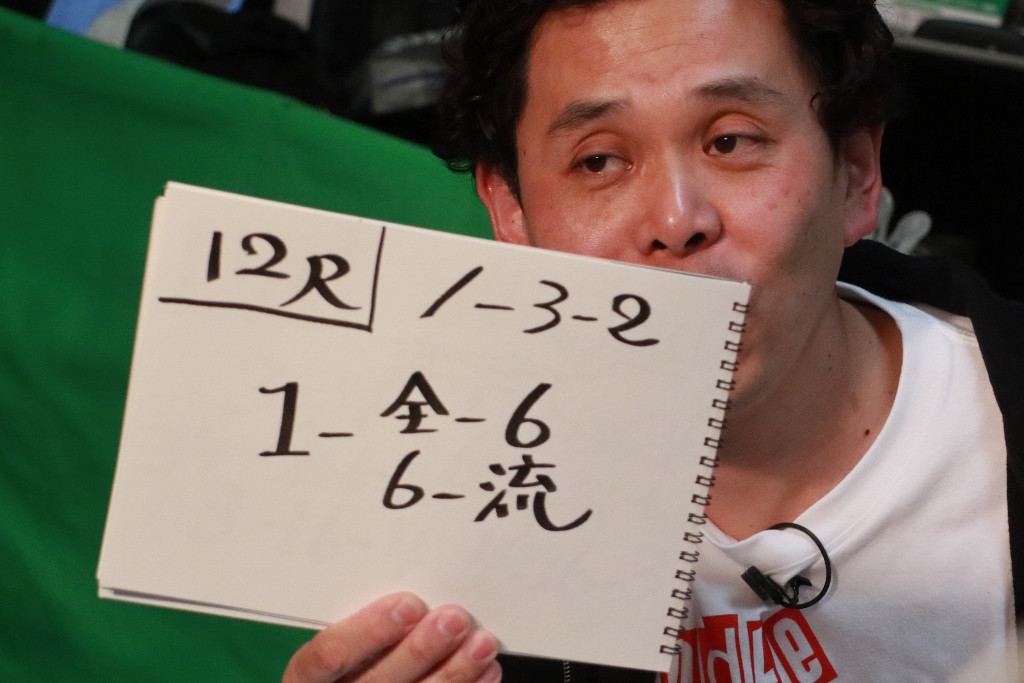 12R 1-3-2
1-全-6
6-流